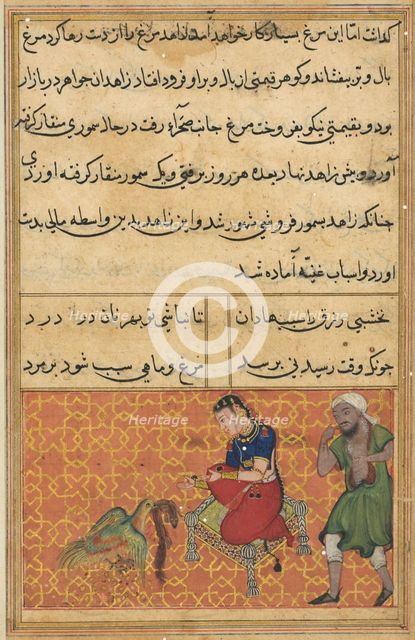 کذاشت اما این مرغ بسیار کار خواهد آمد زاهد مرغ را از دست رها کرد مرغ
بال و پر بیفشاند و کوهر قیمتی از بال و براو فرود افتاد زاهدان جواهر در بازار
بود و بقیمتی نیکو بفروخت مرغ جانب صحرا رفت در حال سموری منقار کرفته
آورد و پیش زاهد نهاد بعده هر روز برفتی و یک سمور منقار کرفته اوردی
جنانکه زاهد بسمور فروشی مشهور شد و این زاهد بدین واسطه مالی بدست
اورد و اسباب غنیه آماده شد
نخشبی رزق را بهانه دان تا نباشی تو بهر نان در درد
جونکه وقت رسیدنی برسد مرغ و ماهی سبب شود بر مرد
Heritage
Heritage
Heritage
Heritage
Heritage
Heritage